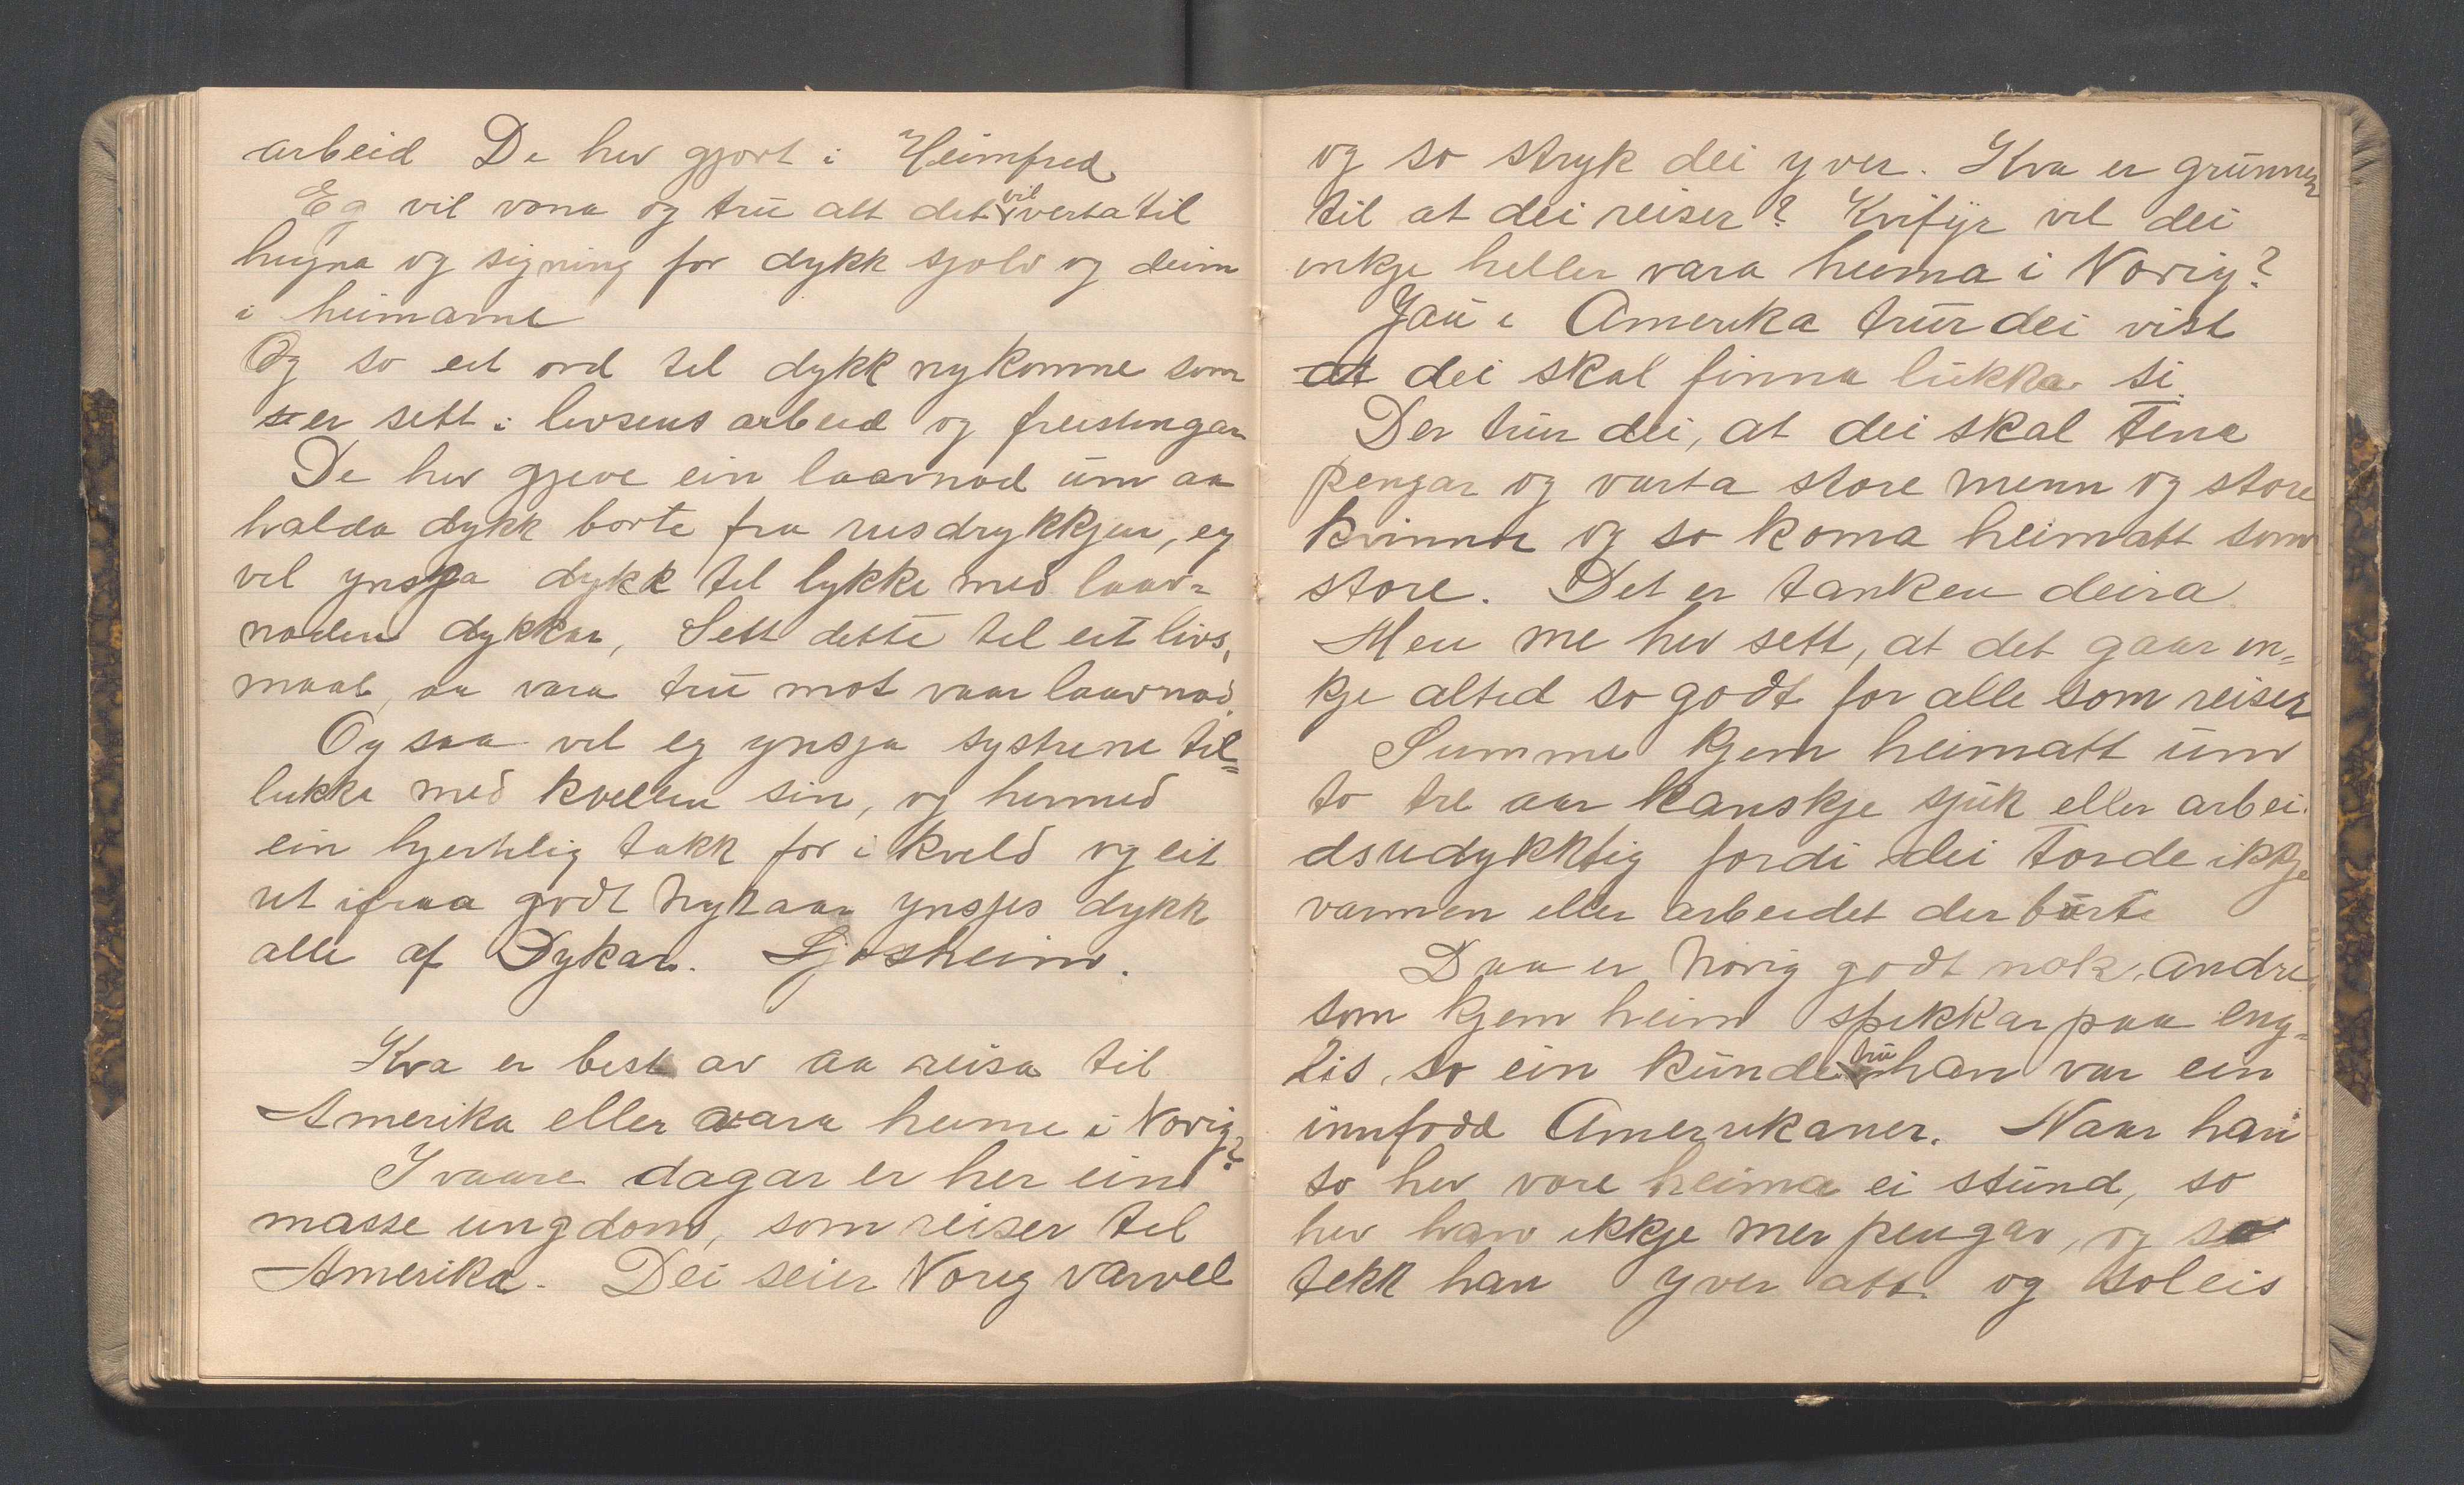 arbeid De hev gjort i Heimfred
Eg vil vona og tru att det vil verta til
hugna og signing for dykk sjolv og deim
i heimarne
Og so eit ord til dykk nykomne som
er sett i livsens arbeid og freistingar
De hev gjeve ein laavnad um aa
halda dykk borte fra rusdrykkjen, eg
vil ynsja dykk til lykke med laav=
naden dykkar, Sett dette til eit livs,
maal, aa vara tru mot vaar laavnad.
Og saa vil eg ynsja systrene til=
lukka med kvelden sin, og hermed
ein hjertelig takk for i kveld og eit
ut ifraa godt Nyt aar ynsjes dykk
alle af Dykar. Ljosheim.
Kva er best av aa reisa til
Amerika eller vara heime i Norig?
I vaare dagar er her ein
masse ungdom, som reiser til
Amerika. Dei seier Noreg varvel
og so stryk dei yver. Kva er grunnen
til at dei reiser? Kvifyr vil dei
inkje heller vara heima i Norig?
Jau i Amerika trur dei vist
at dei skal finna lukka si.
Der trur dei, at dei skal tena
pengar og varta store menn og store
kvinnor og so koma heimatt som
store. Det er tanken deira
Men me hev sett, at det gaar in=
kje altid so godt for alle som reiser
Summe kjem heimatt um
to tre aar kanskje sjuk eller arbei
dsudykktig fordi dei torde ikkje
varmen eller arbeidet der burte
Daa er Norig godt nok. Andre
som kjem heim spikkar paa eng=
lis, so ein kunde tru han var ein
innfodd Amerrikaner. Naar han
so hev vore heima ei stund, so
hev han ikkje mer pengar, og so
tekk han yver att. og soleis